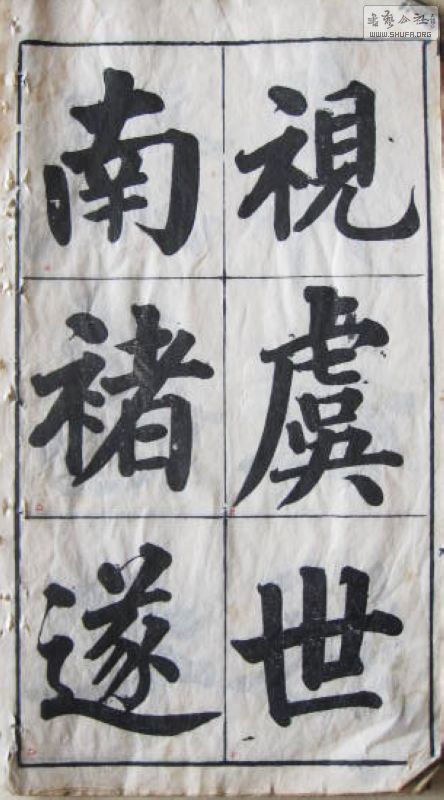 視虞世
南褚遂
书艺公社
WWW.SHUFA.ORG